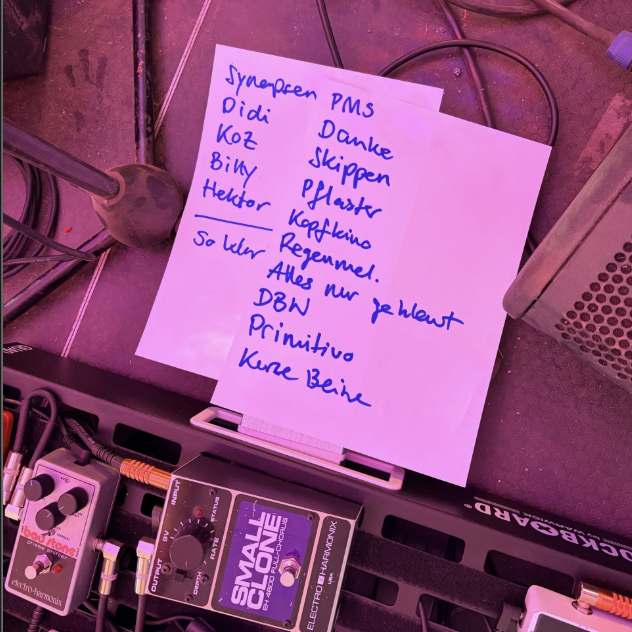 Synapsen
Didi
KOZ
Billy
Hektor
So klar
PMS
Danke
Skippen
Pflaster
Kopfkino
Regenmel.
Alles nur geklaut
DBN
Primitivo
Kurze Beine
INPUT
9V
OUTPUT
STATUS
RATE
DEPTH
SMALL
CLONE
EH 4600 FULL-CHORUS
ELECTRO-HARMONIX
USA
bad stone
phase shifter
electro-harmonix
OCKBOARD®